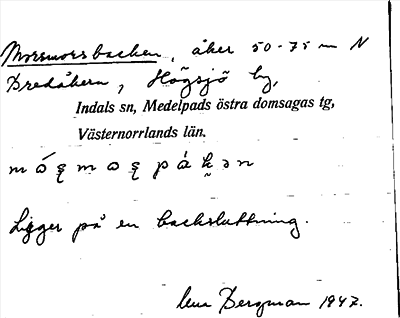 Morsmorsbacken, åker 50-75 m N
Bredåkern, Högsjö by,
Indals sn, Medelpads östra domsagas tg,
Västernorrlands län.
Ligger på en backsluttning.
Bergman 1947.